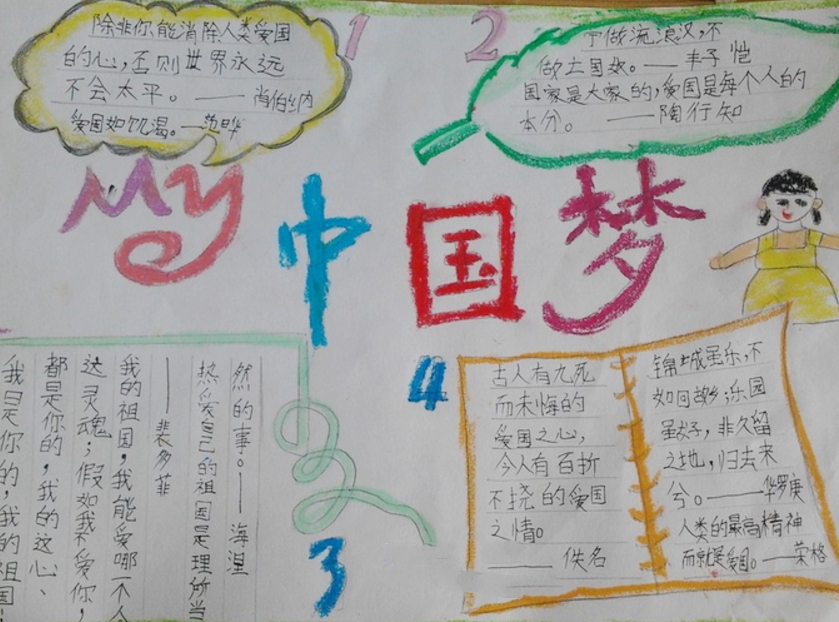 除非你能消除人类爱国
的心，否则世界永远
不会太平。——肖伯纳
爱国如饥渴。—范晔
1
2
宁做流浪汉，不
做亡国奴。——丰子恺
国家是大家的，爱国是每个人的
本分。——陶行知
My 中国梦
然的事。——海涅
热爱自己的祖国是理所当
——裴多菲
我的祖国，我能爱哪一个人
这灵魂；假如我不爱你，
都是你的，我的这心、
我是你的，我的祖国！
3
4
古人有九死
而未悔的
爱国之心，
今人有百折
不挠的爱国
之情。
——佚名
锦城虽乐，不
如回故乡；乐园
虽好，非久留
之地，归去来
兮。——华罗庚
人类的最高精神
而就是爱国。—荣格